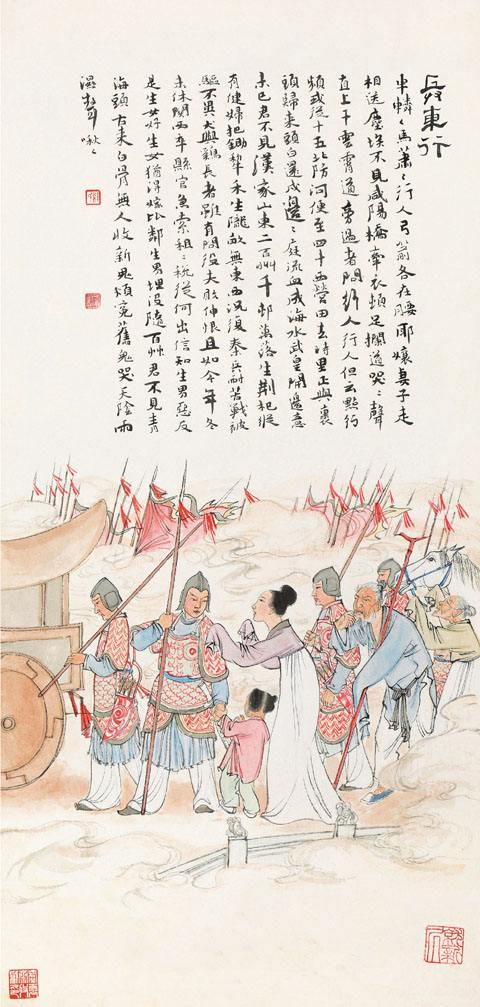 兵車行
車轔々馬蕭々行人弓箭各在腰耶孃妻子走
相送塵埃不見咸陽橋牽衣頓足攔道哭々聲
直上干雲霄道旁過者問行人行人但云點行
頻或從十五北防河便至四十西營田去時里正與裹
頭歸來頭白還戍邊々庭流血成海水武皇開邊意
未已君不見漢家山東二百州千邨萬落生荆杞縱
有健婦把鋤犂禾生隴畝無東西況復秦兵耐苦戰被
驅不異犬與雞長者雖有問役夫敢伸恨且如今年冬
未休關西卒縣官急索租々稅從何出信知生男惡反
是生女好生女猶得嫁比鄰生男埋沒隨百艸君不見青
海頭古來白骨無人收新鬼煩冤舊鬼哭天陰雨
濕聲啾々